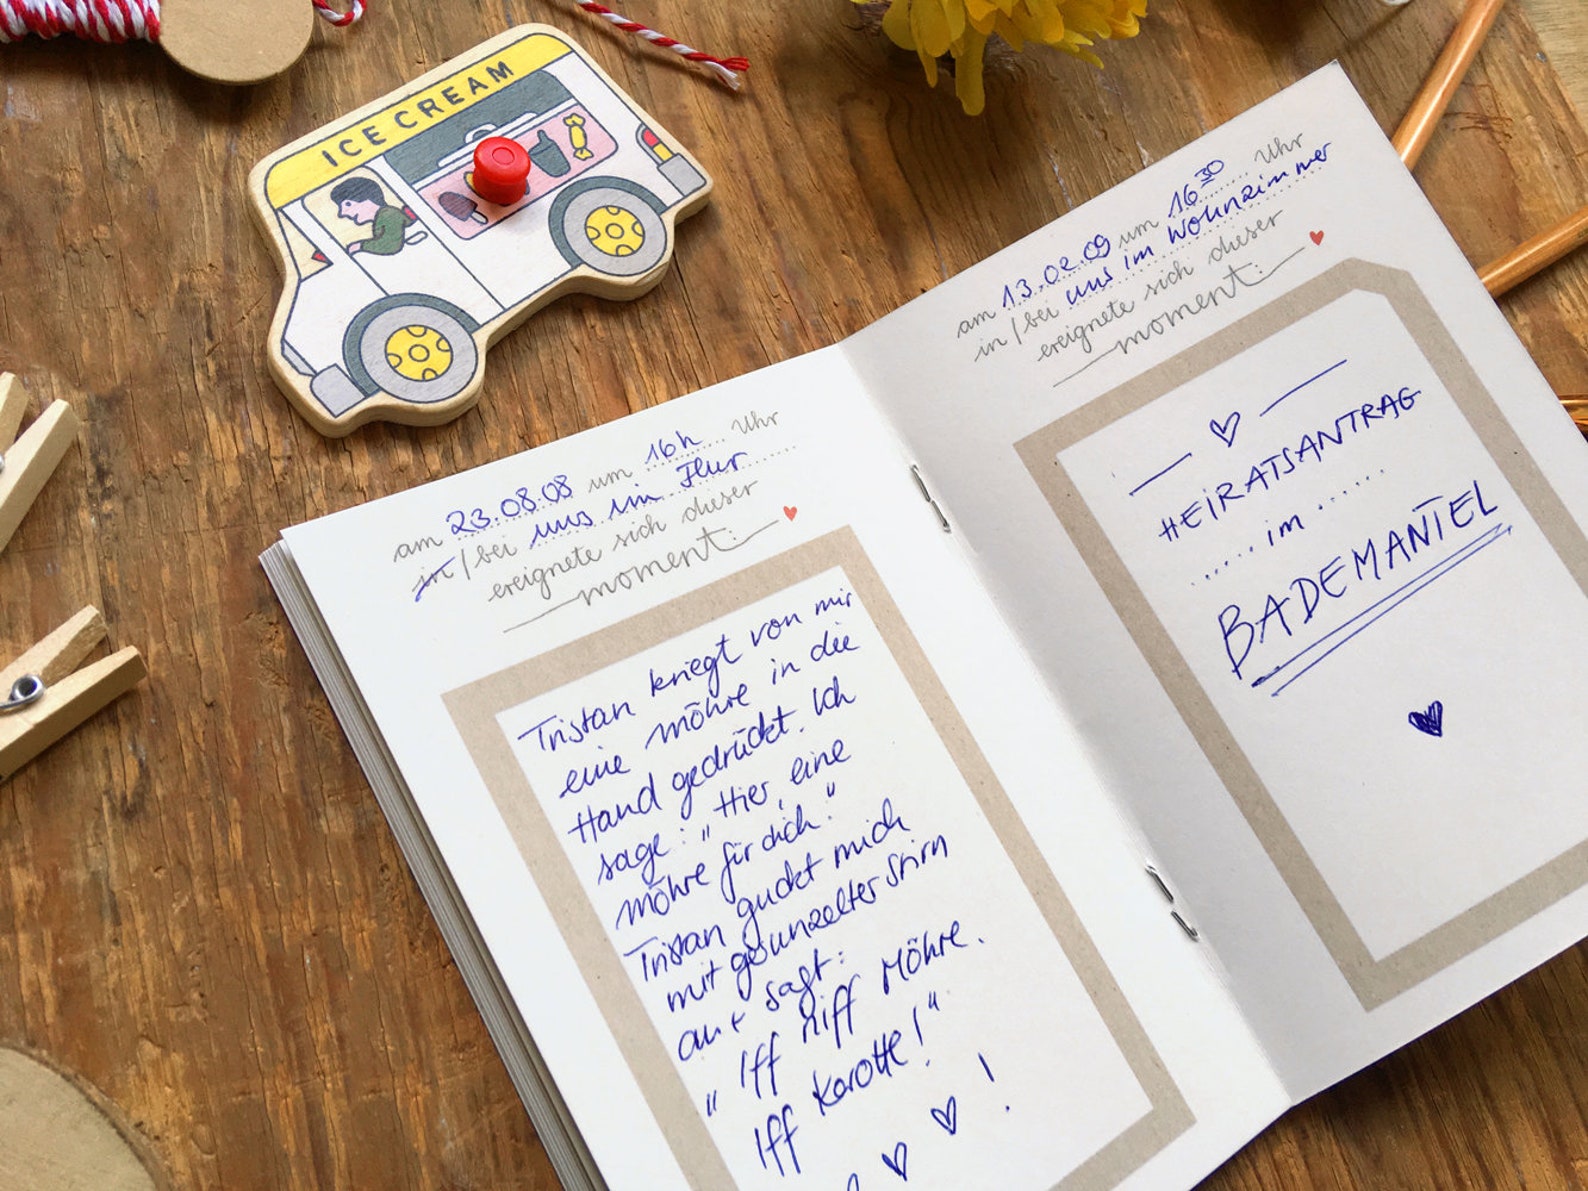 ICE CREAM
am 23.08.08 um 16h Uhr
in / bei uns im Flur
ereignete sich dieser
moment:
Tristan kriegt von mir
eine Möhre in die
Hand gedrückt. Ich
sage: „Hier, eine
Möhre für dich."
Tristan guckt mich
mit gerunzelter Stirn
an + sagt:
„Iff niff Möhre.
Iff Karotte!"
!
am 13.02.09 um 16 30 Uhr
in / bei uns im Wohnzimmer
ereignete sich dieser
moment:
HEIRATSANTRAG
..... im .....
BADEMANTEL